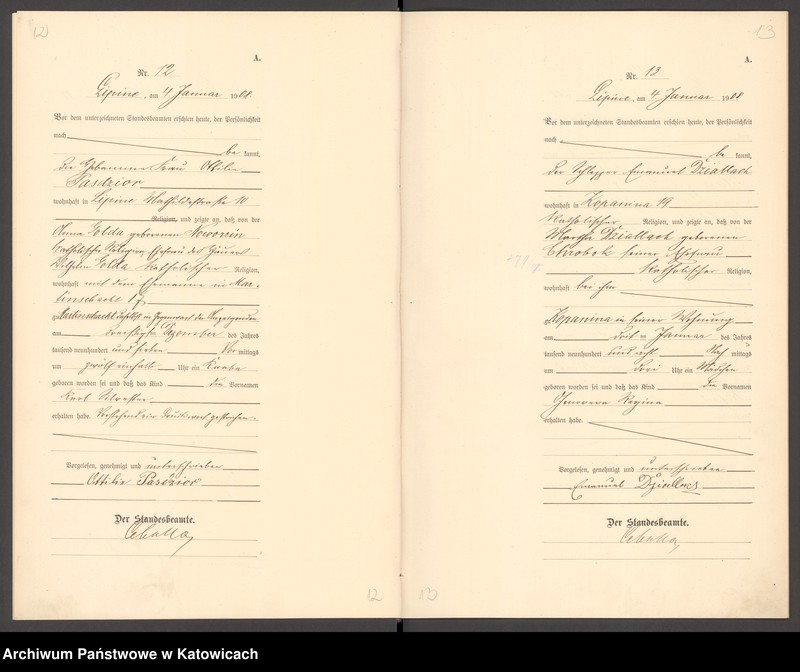 12
A.
Nr. 12
Lipine, am 4 Januar 1908.
Vor dem unterzeichneten Standesbeamten erschien heute, der Persönlichkeit
nach
be kannt,
die Hebamme Frau Ottilie
Pasdzior
wohnhaft in Lipine Mathildestraße 10
Religion, und zeigte an, daß von der
Anna Golda geborenen
katholischer Religion, Ehefrau des
Wilhelm Golda katholischer Religion,
wohnhaft mit dem Ehemanne in Mar-
tinschacht
zu Martinschacht daselbst in Gegenwart der Anzeigenden
am dreißigsten Dezember des Jahres
tausend neunhundert und sieben Vor mittags
um zwölf einhalb Uhr ein Knabe
geboren worden sei und daß das Kind die Vornamen
Karl Silvester
erhalten habe. Vorstehend ein Druckwort gestrichen.
Vorgelesen, genehmigt und unterschrieben
Ottilie Pasdzior
Der Standesbeamte.
12
13
A.
Nr. 13
Lipine, am 4. Januar 1908
Vor dem unterzeichneten Standesbeamten erschien heute, der Persönlichkeit
nach
be kannt,
der Schlepper Emanuel Dziallach
wohnhaft in Kopanina 19
katholischer Religion, und zeigte an, daß von der
Martha Dziallach geborenen
Chrobok seiner Ehefrau
katholischer Religion,
wohnhaft bei ihm
zu Kopanina in seiner Wohnung
am Januar des Jahres
tausend neunhundert und acht Nach mittags
um drei Uhr ein Mädchen
geboren worden sei und daß das Kind die Vornamen
Genoveva Regina
erhalten habe.
Vorgelesen, genehmigt und unterschrieben
Emanuel
Der Standesbeamte.
13
Archiwum Państwowe w Katowicach